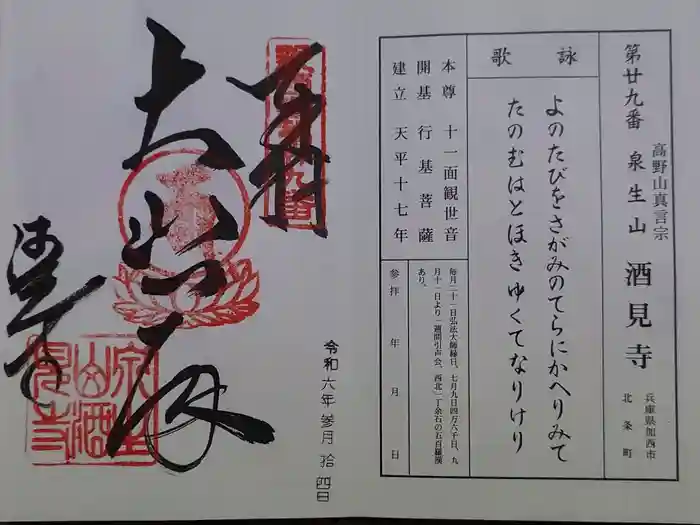 第廿九番 泉生山 酒見寺
高野山真言宗
兵庫県加西市
北条町
詠歌
よのたびをさがみのてらにかへりみて
たのむはとほきゆくてなりけり
本尊 十一面観世音
開基 行基菩薩
建立 天平十七年
毎月二十一日弘法大師縁日、七月九日四万六千日、九
月十一日より一週間引声会、西北一丁余石の五百羅漢
あり。
参拝 年 月 日
奉拝
大悲殿
酒見寺
令和六年参月拾四日
泉生
山酒
見寺